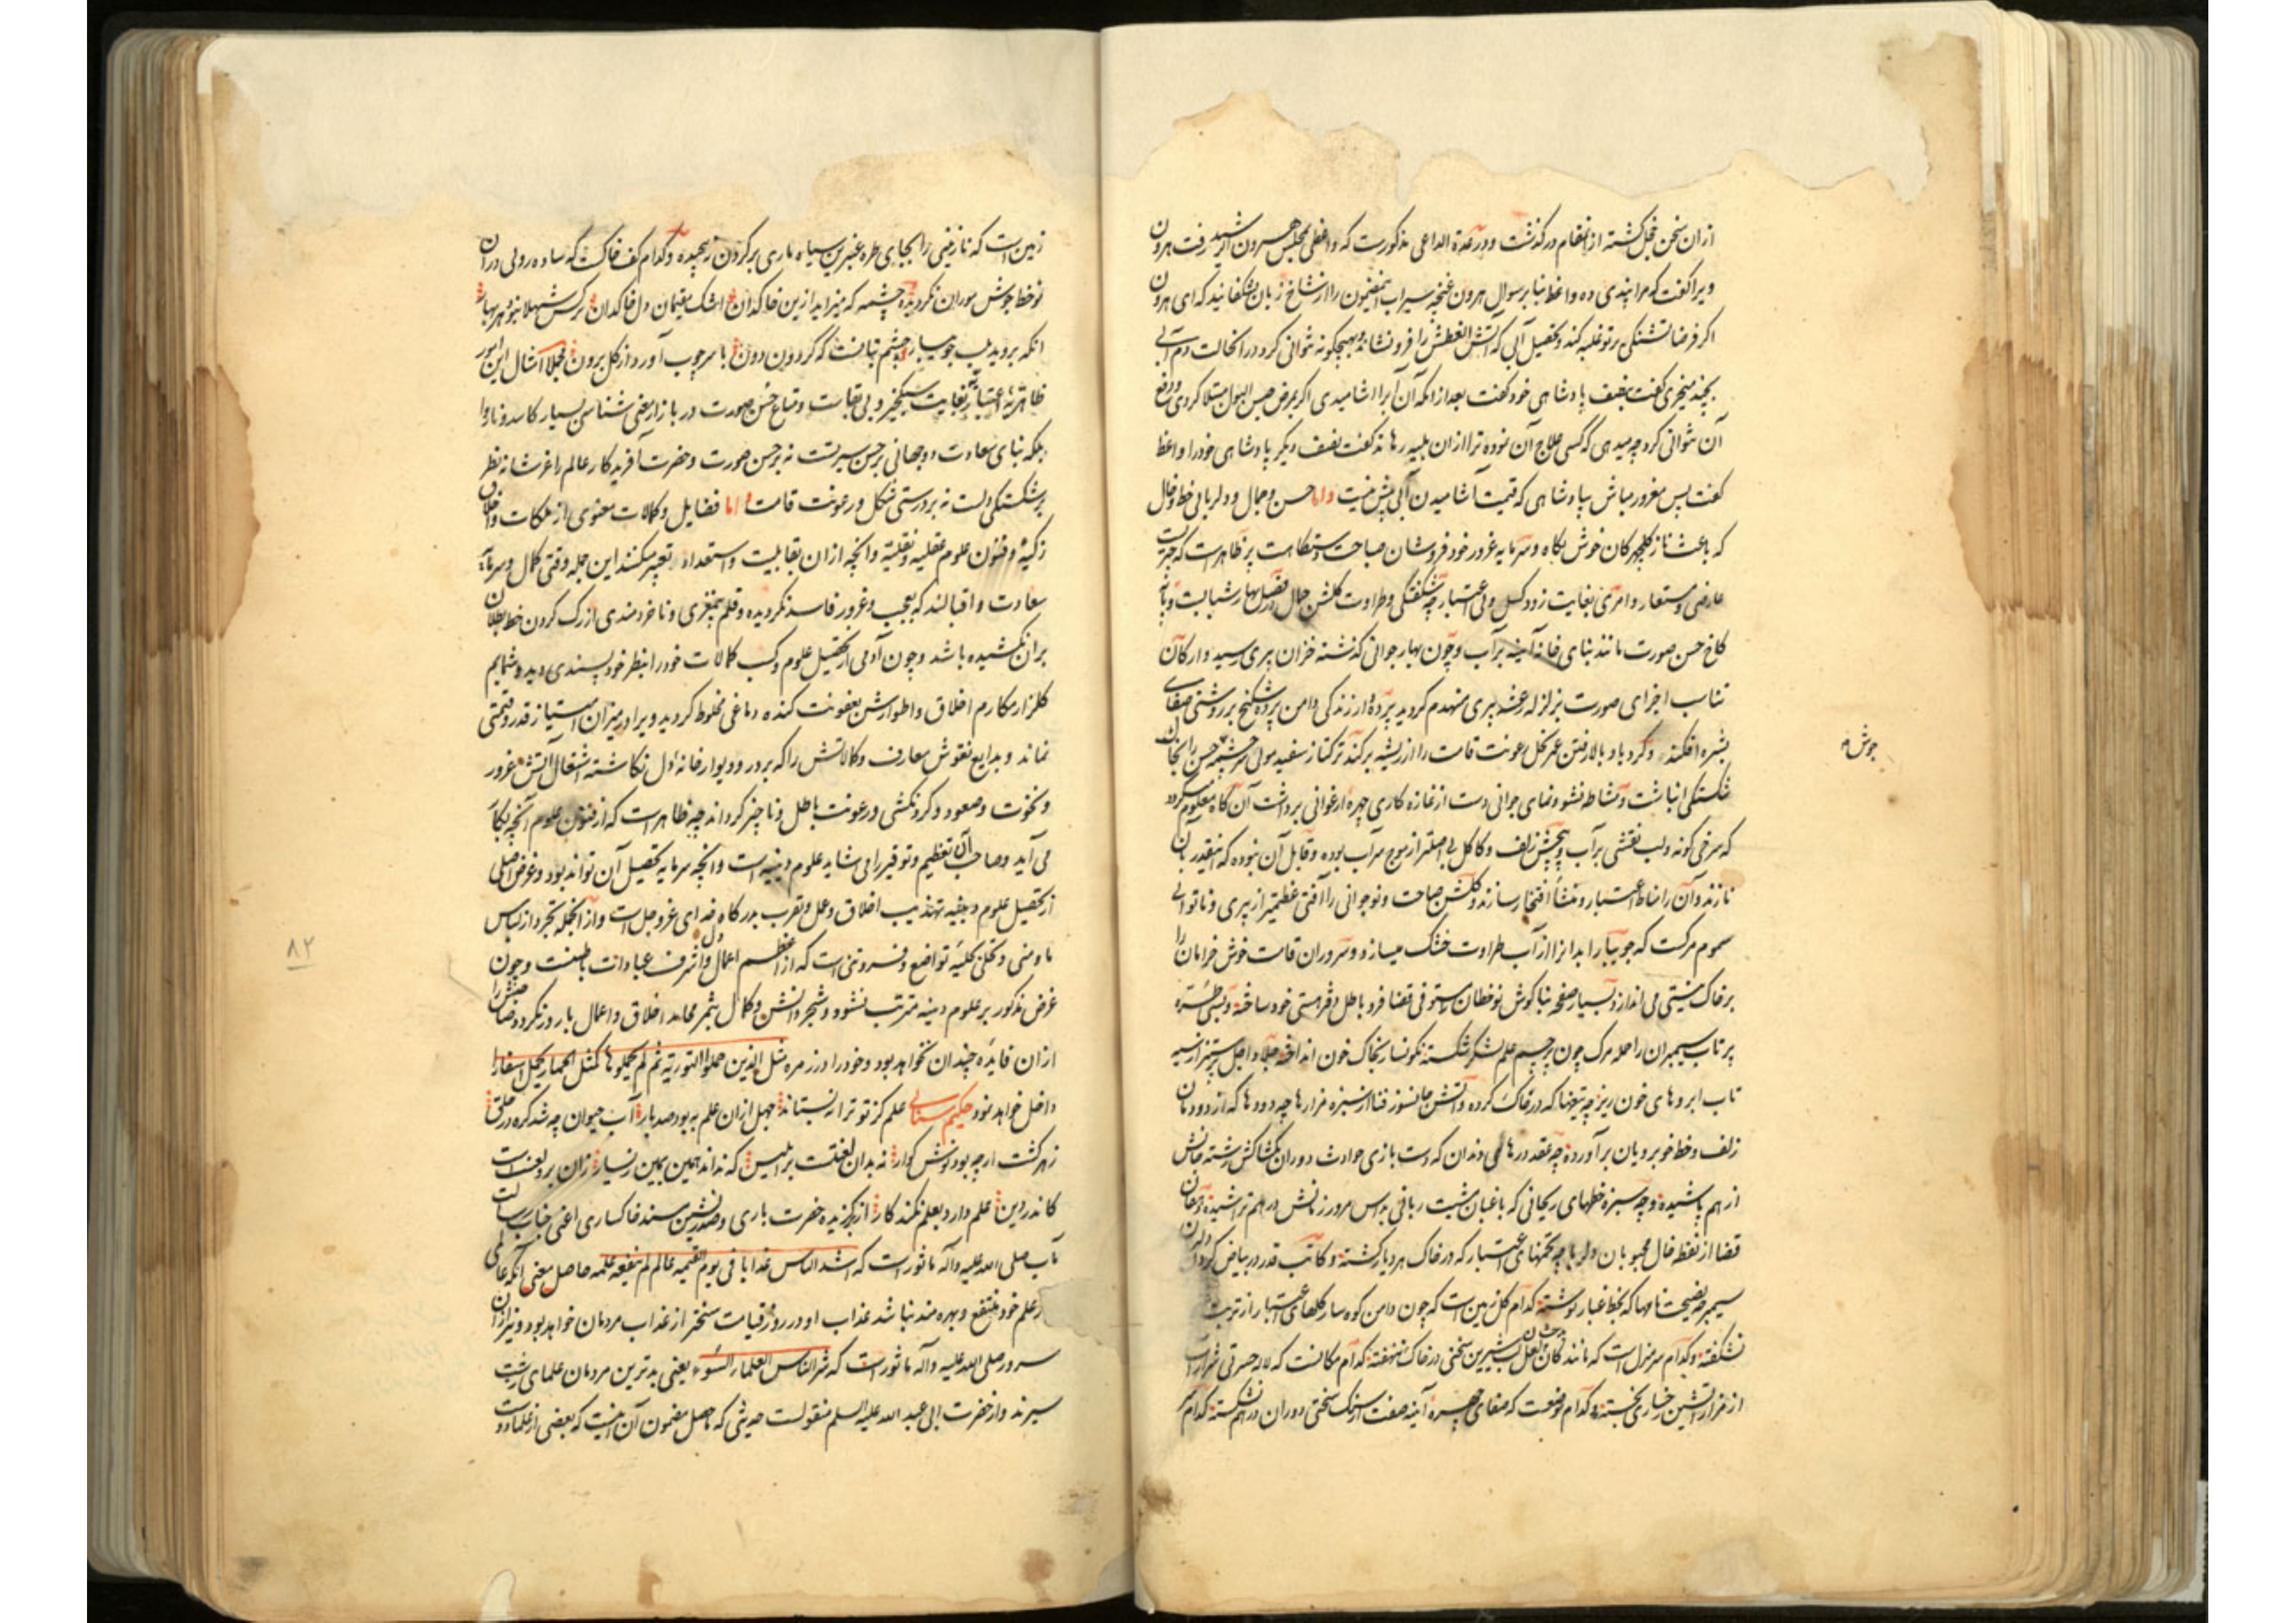 ازان سخن خجل کشته از انتقام درکذشت و در عدة الداعی مذکورست که واعظی بمجلس هرون الرشید رفت هرون
ویرا کفت که مرا پندی ده واعظ بنا بر سوال هرون غنچه سیراب این مضمون را از شاخ زبان بشکفانید که ای هرون
اکر فرضا تشنکی بر تو غلبه کند و تحصیل آبی که آتش العطش را فرو نشاند بهیچکونه نتوانی کرد در انحالت دم آبی
بچند میخری کفت بنصف پادشاهی خود کفت بعد از انکه آن آب را اشامیدی اکر بمرض حبس البول مبتلا کردی و دفع
آن نتوانی کرد چه میدهی که کسی علاج آن نموده ترا ازان بلیه رهاند کفت بنصف دیکر پادشاهی خود را واعظ
کفت پس مغرور مباش بپادشاهی که قیمت آشامیدن آبی بیش نیست و اما حسن و جمال و دلربائی خط و خال
که باعث ناز کلچهرکان خوش نکاه و سرمایه غرور خود فروشان صباحت دستکاهست پر ظاهرست که چیزیست
عارضی و مستعار و امری بغایت زود کسل و بی اعتبار چه شکفتکی و طراوت کلشن جمال در فصل بهار شبابست و بنای
کاخ حسن صورت مانند بنای خانه آینه بر آب و چون بهار جوانی کذشته خزان پیری رسید و ارکان
تناسب اجزای صورت بزلزله رعشه پیری منهدم کردید پرده دار زندکی دامن پرده شکنج بر روشنی صفای
بشره افکند و کرد باد بالا رفتن عمر نخل رعونت قامت را از ریشه برکند ترکتاز سفید موئی سرچشمه حسن را بخاک
جوش م
شکستکی انباشت و مشاطه نشو و نمای جوانی دست از غازه کاری چهره ارغوانی برداشت آن کاه معلوم میکردد
که سرخی کونه و لب نقشی بر آب و پیچش زلف و کاکل بی اصلتر از موج سراب بوده و قابل آن نبوده که اینقدر بآن
نازند و آن را مناط اعتبار و منشأ افتخار سازند و کلشن صباحت و نوجوانی را آفتی عظیمتر از پیری و ناتوانی
سموم مرکست که جویبار ابدانرا از آب طراوت خشک میسازد و سروران قامت خوش خرامان را
بر خاک نیستی می اندازد بسیار صفحه بناکوش نوخطان مستوفی قضا فرد باطل دفتر هستی خود ساخته و بسی طره
پرتاب سیمبران را حمله مرک چون پرچم علم لشکر شکسته نکونسار بخاک خون انداخته جلاد اجل بسر پنجه
تاب ابروهای خون ریز چه تیغها که در خاک کرده و آتش جانسوز فنا از سبزه مزارها چه دودها که از دودمان
زلف و خط خوبرویان برآورده چه عقد درهای دندان که دست بازی حوادث دوران بکشاکش رشته جانش
از هم پاشیده و چه سبزه خطهای ریحانی که باغبان مشیت ربانی بداس مرور زمانش در هم تراشیده دهقان
قضا از نقطه خال محبوبان دلربا چه تخمهای عبرت بار که در خاک هر دیار کشته و کاتب قدر در بیاض کردن دلبران
سیمبر چه نصیحت نامها که بخط غبار نوشته کدام کل زمین است که چون دامن کوه سار کلهای عبرت بار از تربت
نشکفته و کدام سر منزل است که مانند کان بدخشان لعل لب شیرین سخنی در خاک ننهفته کدام مکانست که لاله حسرتی شرار آسا
از مزار آتشین رخساری نجسته و کدام موضعست که صفای چهره آینه صفت از سنک سختی دوران در هم نشکسته کدام سر
زمین است که نازنینی را بجای طره عنبرین سیاه ماری بر کردن نپیچیده و کدام کف خاکست که ساده روئی دران
نو خط جوش موران نکردیده چشمه که میزاید ازین خاکدان اشک مقیمان دل خاکدان نرکس شهلا نبود هر بهار
انکه بروید بلب جویبار چشم بتانست که کردون دون با سر چوب آورد از کل برون مجملا امثال این امور
ظاهریه اعتبار بغایت سبکخیز و بی بقاست و متاع حسن صورت در بازار معنی شناسی بسیار کاسد و ناروا
بلکه بنای سعادت دو جهانی بر حسن سیرتست نه بر حسن صورت و حضرت آفریدکار عالم را عز شانه نظر
بر شکستکی دلست نه بر درستی شکل و رعونت قامت و اما فضایل و کمالات معنوی از ملکات و اخلاق
زکیه و فنون علوم عقلیه و نقلیه و انچه ازان بقابلیت و استعداد تعبیر میکنند این جمله وقتی کمال و سرمایه
سعادت و اقبالند که بعجب و غرور فاسد نکردیده و قلم بیمغزی و ناخردمندی از رک کردن خط بطلان
بران نکشیده باشد و چون آدمی از تحصیل علوم و کسب کمالات خود را بنظر خود پسندی دید و شمایم
کلزار مکارم اخلاق و اطوارش بعفونت کنده دماغی مخلوط کردید ویرا در میزان امتیاز قدر و قیمتی
نماند و بدایع نقوش معارف و کمالاتش را که بر در و دیوار خانه دل نکاشته اشتعال آتش غرور
و نخوت و صعود و کردنکشی و رعونت باطل و ناچیز کرداند چه ظاهر است که از فنون علوم آنچه بکار
می آید و صاحب آن تعظیم و توقیر را می شاید علوم دینیه است و انچه سرمایه تحصیل آن تواند بود و غرض اصلی
از تحصیل علوم دینیه تهذیب اخلاق و عمل و تقرب بدرکاه خدای عز و جل است و از انجمله تجرد از لباس
ما و منی و تحلی بحلیه تواضع و فروتنی است که از اعظم اعمال دل و اشرف عبادات باطنست و چون
غرض مذکور بر علوم دینیه مترتب نشود و شجر دانش و کمال بثمر محامد اخلاق و اعمال بارور نکردد صاحبش را
ازان فایده چندان نخواهد بود و خود را در زمره مثل الذین حملوا التوریة ثم لم یحملوها کمثل الحمار یحمل اسفارا
داخل خواهد نمود حکیم سنائی علم کز تو ترا نه بستاند جهل ازان علم به بود صد بار آب حیوان چه شد کره در حلق
زهر کشت ارچه بود نوش کوار نه بدان لعنتست بر ابلیس که نداند همین یمین ز یسار زان برو لعنتست
کاندر دین علم دارد بعلم نکند کار از برکزیده حضرت باری و صدرنشین مسند خاکساری اعنی جناب رسالت
مآب صلی الله علیه و آله ماثورست که اشد الناس عذابا فی یوم القیمه عالم لم ینفعه علمه حاصل معنی آنکه عالمی
از علم خود منتفع و بهره مند نباشد عذاب او در روز قیامت سختتر از عذاب مردمان خواهد بود و نیز ازان
سرور صلی الله علیه و آله ماثورست که شر الناس العلماء السوء یعنی بدترین مردمان علمای زشت
سیرند و از حضرت ابی عبد الله علیه السلم منقولست حدیثی که حاصل مضمون آن اینست که بعضی از علما دوست
۸۲